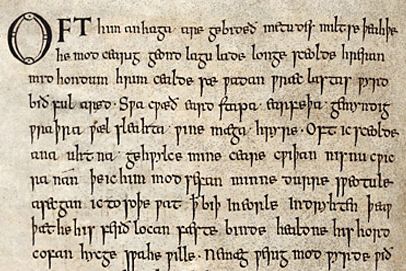 OFT him anhaga are gebideð metudes miltse þeah þe
he mod cearig geond lagu lade longe sceolde hreran
mid hondum hrim cealde sæ wadan wræc lastas wyrd
bið ful aræd · Swa cwæð eard stapa · earfeþa · gemyndig
wraþra wæl sleahta · wine mæga · hryre · Oft ic sceolde
ana uhtna · gehwylce mine ceare cwiþan nis nu cwic
ra nan þe ic him mod sefan minne durre sweotule
asecgan ic to soþe wat · ꝥ biþ in eorle indryhten þeaw
þæt he his ferð locan fæste binde healdne his hord
cofan hycge swa he wille · Ne mæg werig mod wyrde wið